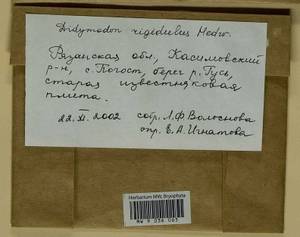 Didymodon rigidulus Hedw.
Рязанская обл, Касимовский
р-н, с. Погост, берег р. Гусь,
старая известняковая
плита.
22. XI. 2002 собр. Л.Ф. Волоснова
опр. Е.А. Игнатова
Herbarium MW, Bryophyta
MW 9 036 083